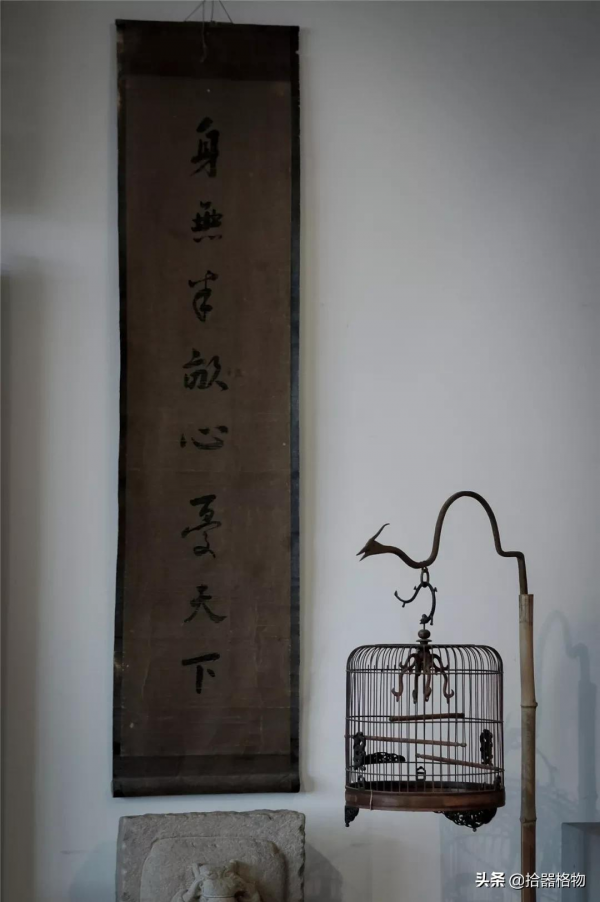 身無半畝心憂天下
头条 @拾器格物